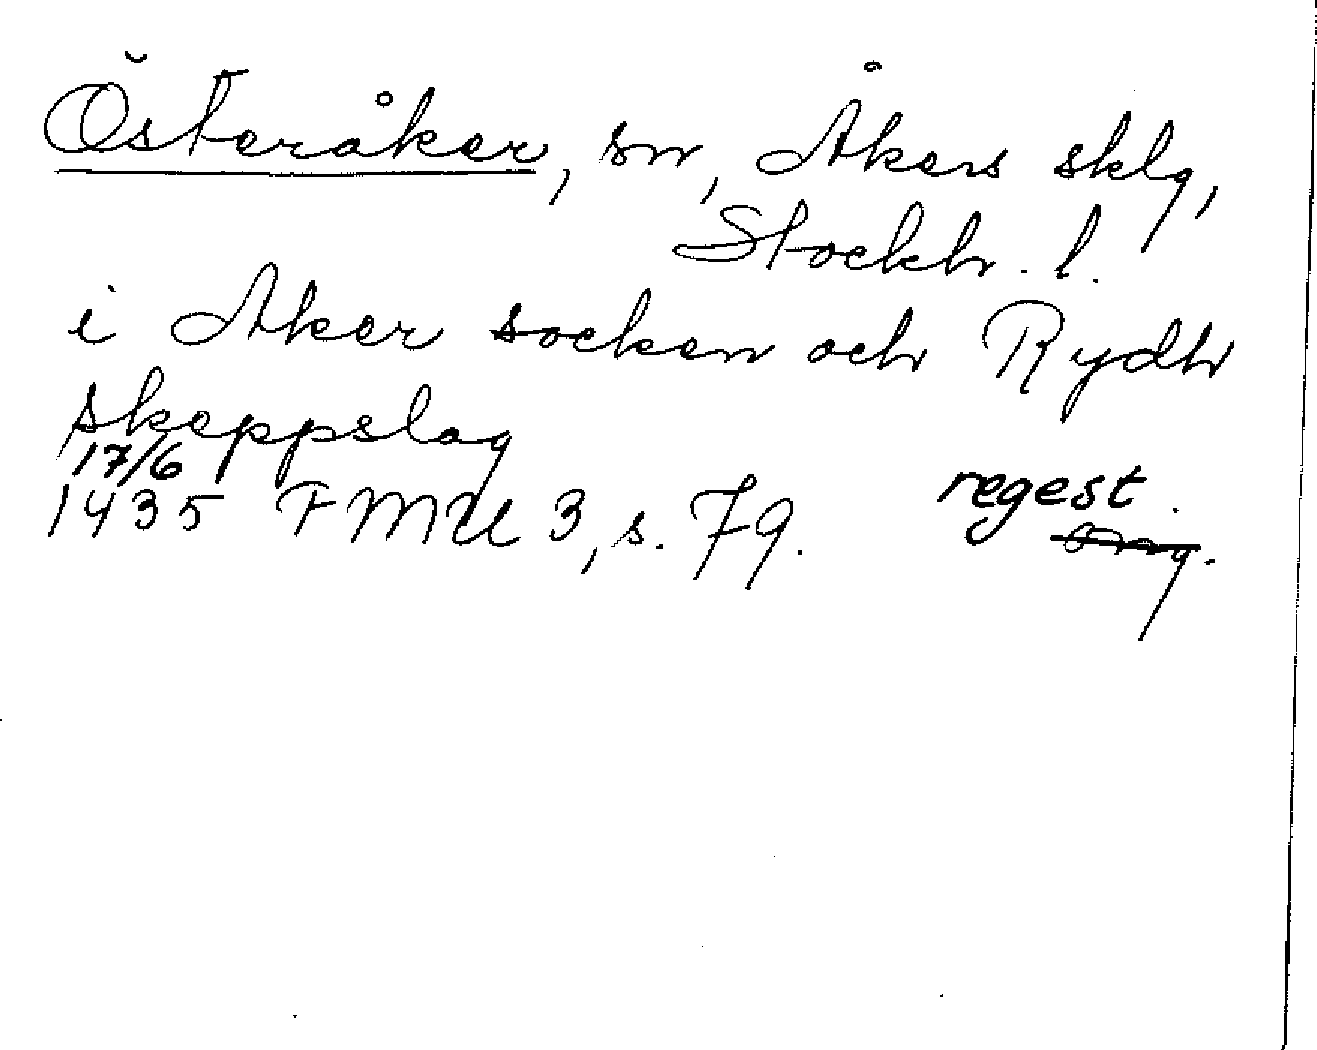 Österåker, sn, Åkers sklg,
Stockh. l.
i Aker socken och Rydh
skeppslag
17/6
1435 FMU 3, s. 79. regest.